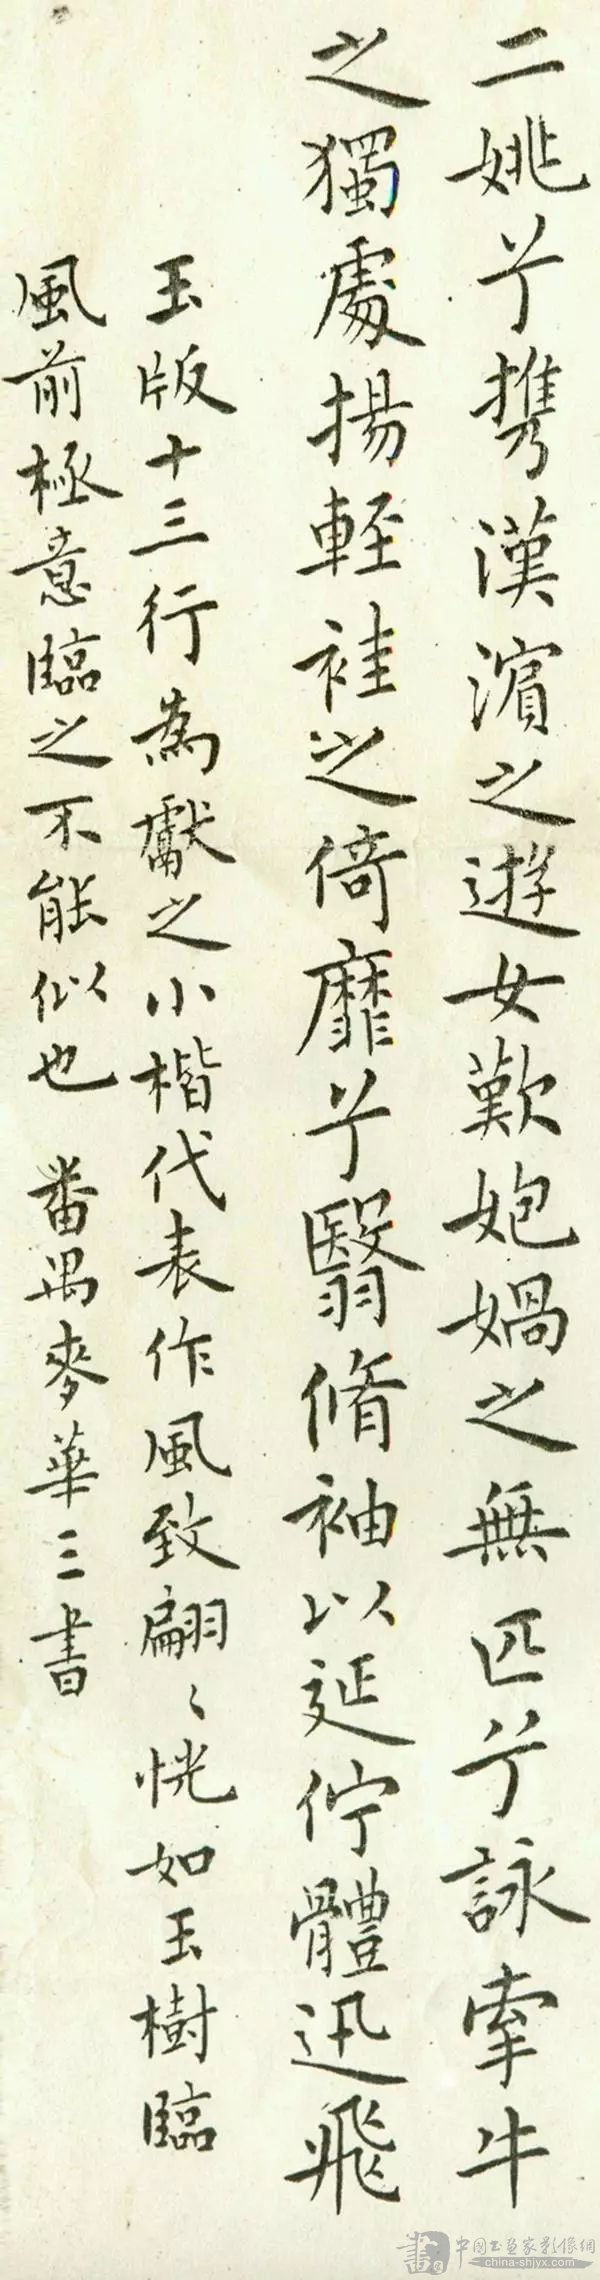 二姚兮携漢濵之遊女歎匏媧之無匹兮詠牽牛
之獨處揚輊袿之倚靡兮翳脩袖以延佇體迅飛
玉版十三行為獻之小楷代表作風致翩〻恍如玉樹臨
風前極意臨之不能似也 番禺麥華三書
中國书画家影像網
china-shjyx.com